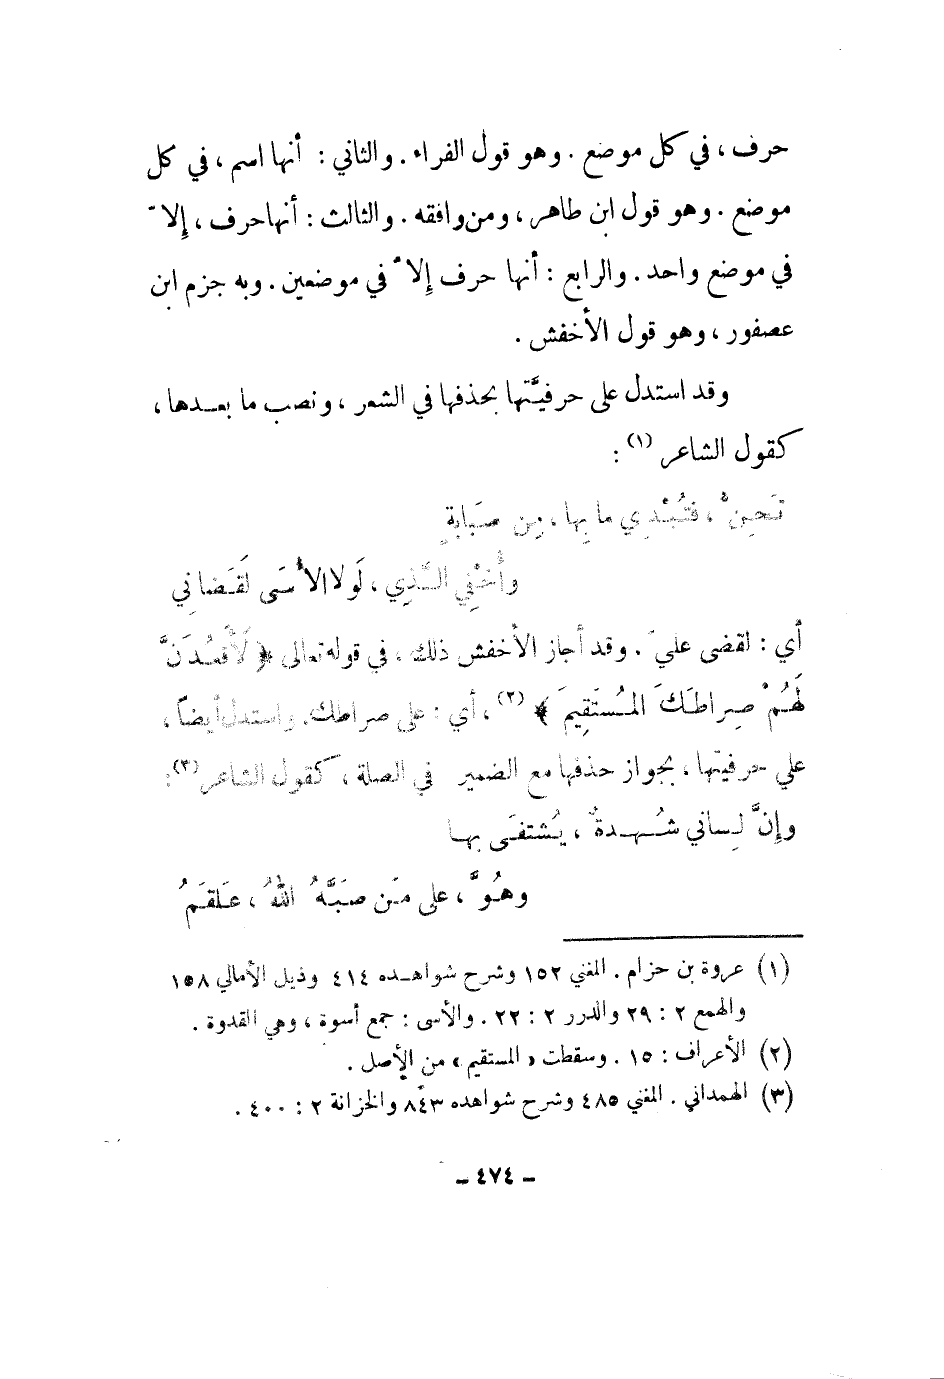 حرف ، في كل موضع . وهو قول الفراء . والثاني : أنها اسم ، في كل
موضع . وهو قول ابن طاهر ، ومن وافقه . والثالث : أنها حرف ، إلاّ
في موضع واحد . والرابع : أنها حرف إلاّ في موضعين . وبه جزم ابن
عصفور ، وهو قول الأخفش .
وقد استدل على حرفيَّتها بحذفها في الشعر ، ونصب ما بعدها ،
كقول الشاعر (١) :
تَحِنُّ ، فتُبْدِي ما بِها ، مِن صَبَابةٍ
وأُخْفِي الَّذِي ، لَولا الأُسَى لقَضاني
أي : لقضى عليَّ . وقد أجاز الأخفش ذلك ، في قوله تعالى ﴿ لَأَقعُدَنَّ
لَهُمْ صِراطَكَ المُستَقِيمَ ﴾ (٢) ، أي : على صراطك . واستدل أيضاً ،
على حرفيتها ، بجواز حذفها مع الضمير في الصلة ، كقول الشاعر (٣) :
وإنَّ لِساني شُهدةٌ ، يُشتفَى بِها
وهُوَّ ، على مَن صَبَّهُ اللهُ ، عَلقَمُ
(١) عروة بن حزام . المغني ١٥٢ وشرح شواهده ٤١٤ وذيل الأمالي ١٥٨
والهمع ٢ : ٢٩ والدرر ٢ : ٢٢ . والأسى : جمع أسوة ، وهي القدوة .
(٢) الأعراف : ١٥ . وسقطت « المستقيم » من الأصل .
(٣) الهمداني . المغني ٤٨٥ وشرح شواهده ٨٤٣ والخزانة ٢ : ٤٠٠ .
- ٤٧٤ -